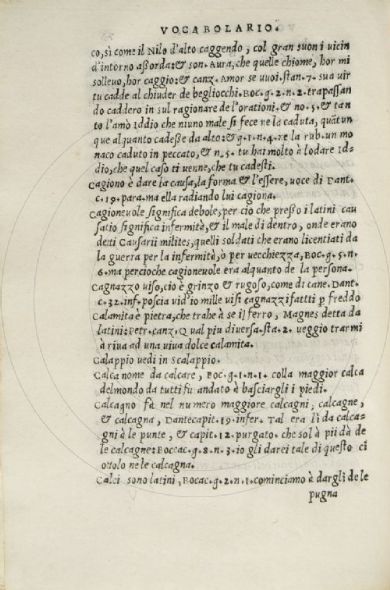 VOCABOLARIO.
co, sì come il Nilo d'alto caggendo, col gran suon i uicin
d'intorno assorda: & son. Aura, che quelle chiome, hor mi
solleuo, hor caggio: & canz. Amor se uuoi. stan. 7. sua uir
tu cadde al chiuder de begliocchi. Boc. g. 2. n. 2. trapassan
do caddero in sul ragionare de l'orationi. & no. 5. & tan
to l'amò Iddio che niuno male si fece ne la caduta, quātun
que alquanto cadesse da alto: & g. 1. n. 4. ne la rub. un mo
naco caduto in peccato, & n. 5. tu hai molto à lodare Id-
dio, che quel caso ti uenne, che tu cadesti.
Cagiono è dare la causa, la forma & l'essere, uoce di Dant.
c. 19. para. ma ella radiando lui cagiona.
Cagioneuole significa debole, per cio che presso i latini cau
satio significa infermità, & il male di dentro, onde erano
detti Causarii milites, quelli soldati che erano licentiati da
la guerra per la infermità, ò per uecchiezza, Boc. g. 5. n.
6. ma percioche cagioneuole era alquanto de la persona.
Cagnazzo uiso, cio è grinzo & rugoso, come di cane. Dant.
c. 32. inf. poscia vid'io mille visi cagnazzi fatti p freddo
Calamita è pietra, che trahe à se il ferro, Magnes detta da
latini: Petr. canz. Qual piu diuersa. sta. 2. ueggio trarmi
à riua ad una uiua dolce calamita.
Calappio uedi in Scalappio.
Calca nome da calcare, Boc. g. 1. n. 1. colla maggior calca
delmondo da tutti fu andato à basciargli i piedi.
Calcagno fà nel numero maggiore calcagni, calcagne,
& calcagna, Dante capit. 19. infer. Tal era lì da calca-
gni à le punte, & capit. 12. purgato. che sol à pii dà de
le calcagne: Boccac. g. 8. n. 3. io gli darei tale di questo ci
ottolo ne le calcagna.
Calci sono latini, Bocac. g. 2. n. 1. cominciamo è dargli de le
pugna